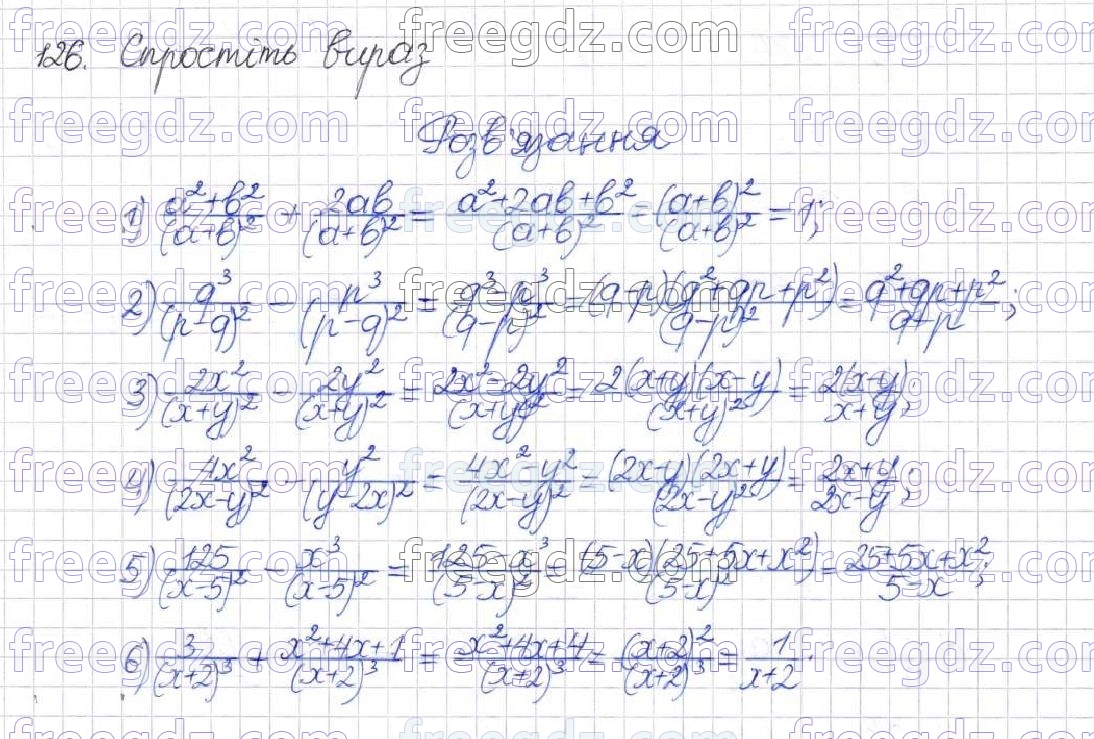 126. Спростіть вираз
Розв'язання
1) (a²+b²)/(a+b)² + 2ab/(a+b)² = (a²+2ab+b²)/(a+b)² = (a+b)²/(a+b)² = 1;
2) q³/(p-q)² - p³/(p-q)² = (q³-p³)/(q-p)² = (q-p)(q²+qp+p²)/(q-p)² = (q²+qp+p²)/(q-p);
3) 2x²/(x+y)² - 2y²/(x+y)² = (2x²-2y²)/(x+y)² = 2(x+y)(x-y)/(x+y)² = 2(x-y)/(x+y);
4) 4x²/(2x-y)² - y²/(y-2x)² = (4x²-y²)/(2x-y)² = (2x-y)(2x+y)/(2x-y)² = (2x+y)/(2x-y);
5) 125/(x-5)² - x³/(x-5)² = (125-x³)/(5-x)² = (5-x)(25+5x+x²)/(5-x)² = (25+5x+x²)/(5-x);
6) 3/(x+2)³ + (x²+4x+1)/(x+2)³ = (x²+4x+4)/(x+2)³ = (x+2)²/(x+2)³ = 1/(x+2).
freegdz.com